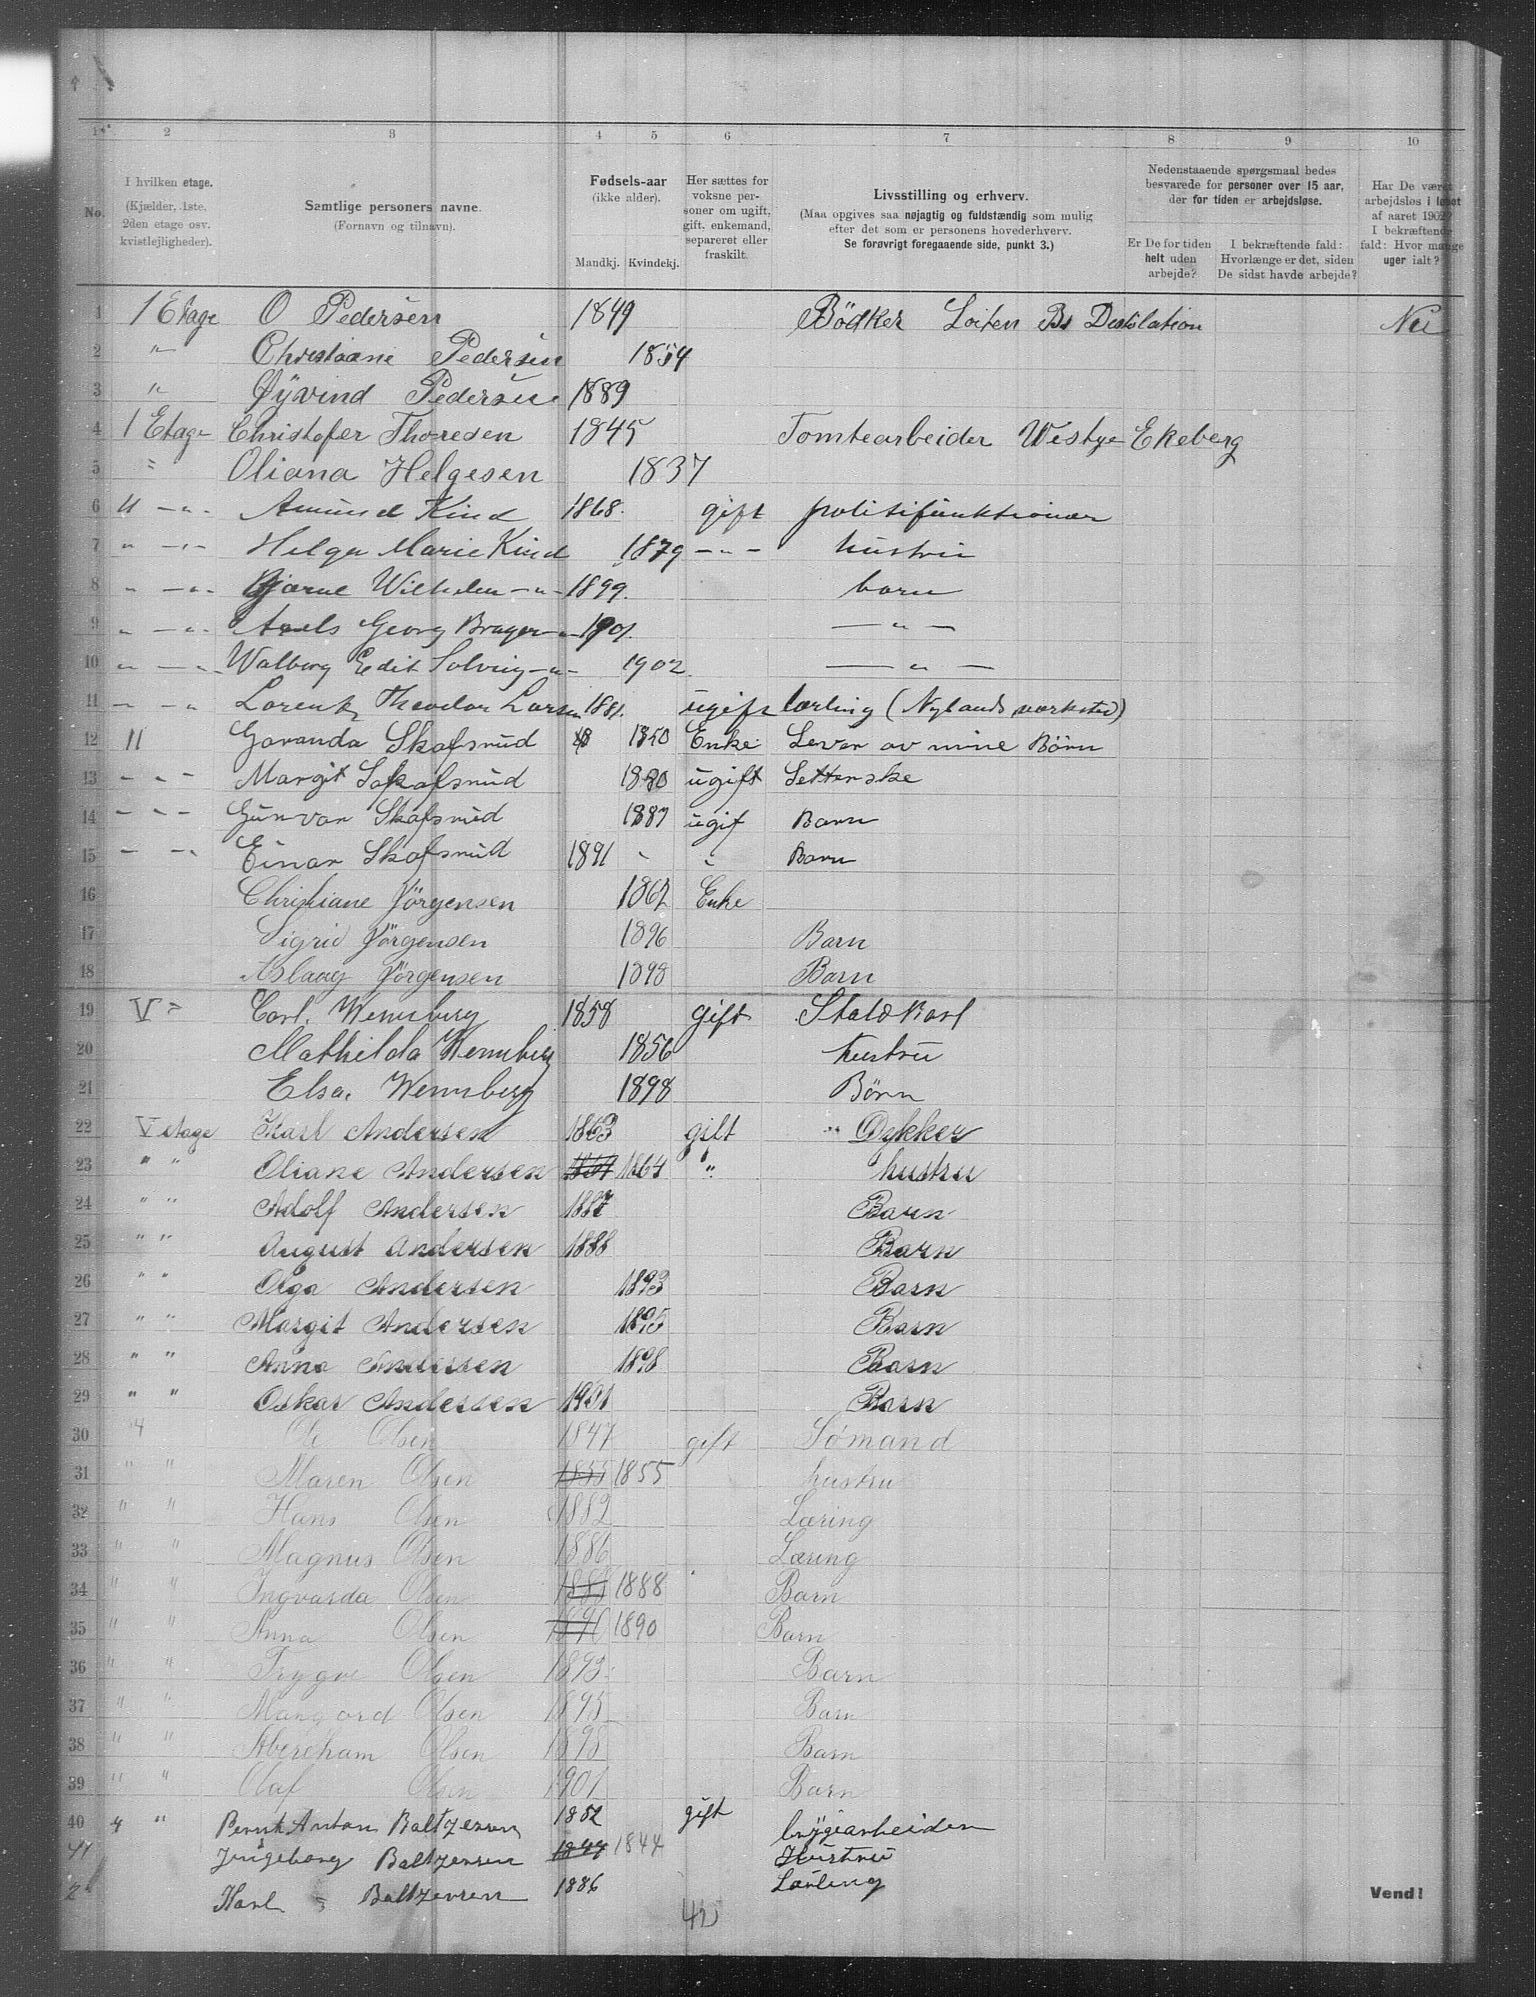 1 2 3 4 5 6 7 8 9 10
No. I hvilken etage. (Kjælder, 1ste, 2den etage osv. kvistlejligheder).
Samtlige personers navne. (Fornavn og tilnavn).
Fødsels-aar (ikke alder). Mandkj. Kvindekj.
Her sættes for voksne personer om ugift, gift, enkemand, separeret eller fraskilt.
Livsstilling og erhverv. (Maa opgives saa nøjagtig og fuldstændig som mulig efter det som er personens hovederhverv. Se forøvrigt foregaaende side, punkt 3.)
Nedenstaaende spørgsmaal bedes besvarede for personer over 15 aar, der for tiden er arbejdsløse.
Er De for tiden helt uden arbejde?
I bekræftende fald: Hvorlænge er det, siden De sidst havde arbejde?
Har De været arbejdsløs i løbet af aaret 1902? I bekræftende fald: Hvor mange uger ialt?
1 1 Etage O Pedersen 1849 Bödker Loiten Bs Destilation Nei
2 " Christiane Pedersen 1854
3 " Øyvind Pedersen 1889
4 1 Etage Christofer Thoresen 1845 Tomtearbeider Westye Ekeberg
5 " Oliana Helgesen 1837
6 II - " - Amund Kind 1868. gift politifunktionær
7 " - " - Helga Marie Kind 1879 - " - hustru
8 " - " - Bjarne Wilhelm - " - 1899. barn
9 " - " - Georg - " - 1901. - " -
10 " - " - Walborg Edit Solveig - " - 1902. - " -
11 " - " Lorentz Theodor Larsen 1881. ugift lærling (Nylands værksted)
12 II Skafsrud 1850 Enke Lever av mine Börn
13 - " - Margit Skafsrud 1880 ugift Setterske
14 - " - Gunvor Skafsrud 1887 ugif Barn
15 - " - Einar Skafsrud 1891 " " Barn
16 Christiane Jörgensen 1862 Enke
17 Sigrid Jörgensen 1896 Barn
18 Aslaug Jörgensen 1898 Barn
19 V " Carl. Wennberg 1858 gift Staldkarl
20 Mathilda Wennberg 1856 hustru
21 Elsa. Wennberg 1898 Børn
22 V etage Karl Andersen 1863 gift " Dykker
23 " " Oliane Andersen 1864 " hustru
24 " " Adolf Andersen 1887 Barn
25 " " August Andersen 1888 Barn
26 " " Olga Andersen 1893 Barn
27 " " Margit Andersen 1895 Barn
28 " " Anna Andersen 1898 Barn
29 " " Oskar Andersen 1901 Barn
30 4 Ole Olsen 1847 gift Sømand
31 " " Maren Olsen 1855 1855 hustru
32 " " Hans Olsen 1882 Læring
33 " " Magnus Olsen 1886 Læring
34 " " Ingvarda Olsen 1888 1888 Barn
35 " " Anna Olsen 1890 1890 Barn
36 " " Trygve Olsen 1893. Barn
37 " " Olsen 1895 Barn
38 " " Abereham Olsen 1898 Barn
39 " " Olaf Olsen 1901 Barn
40 4 " Bernt Anton Baltzersen 1852 gift bryggearbeider
41 Jngeborg Baltzersen 1844 1844 Hustru
2 Karl " Baltzersen 1886 Lærling
42
Vend!